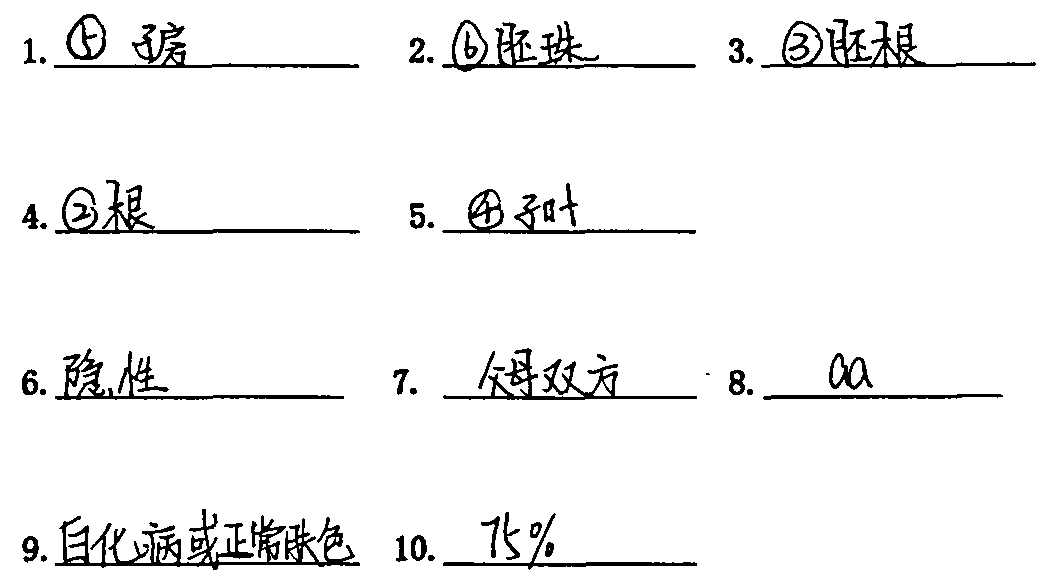 1. ⑤ 子房 2. ⑥胚珠 3. ③胚根
4. ②根 5. ④子叶
6. 隐性 7. 父母双方 8. aa
9. 白化病或正常肤色 10. 75%